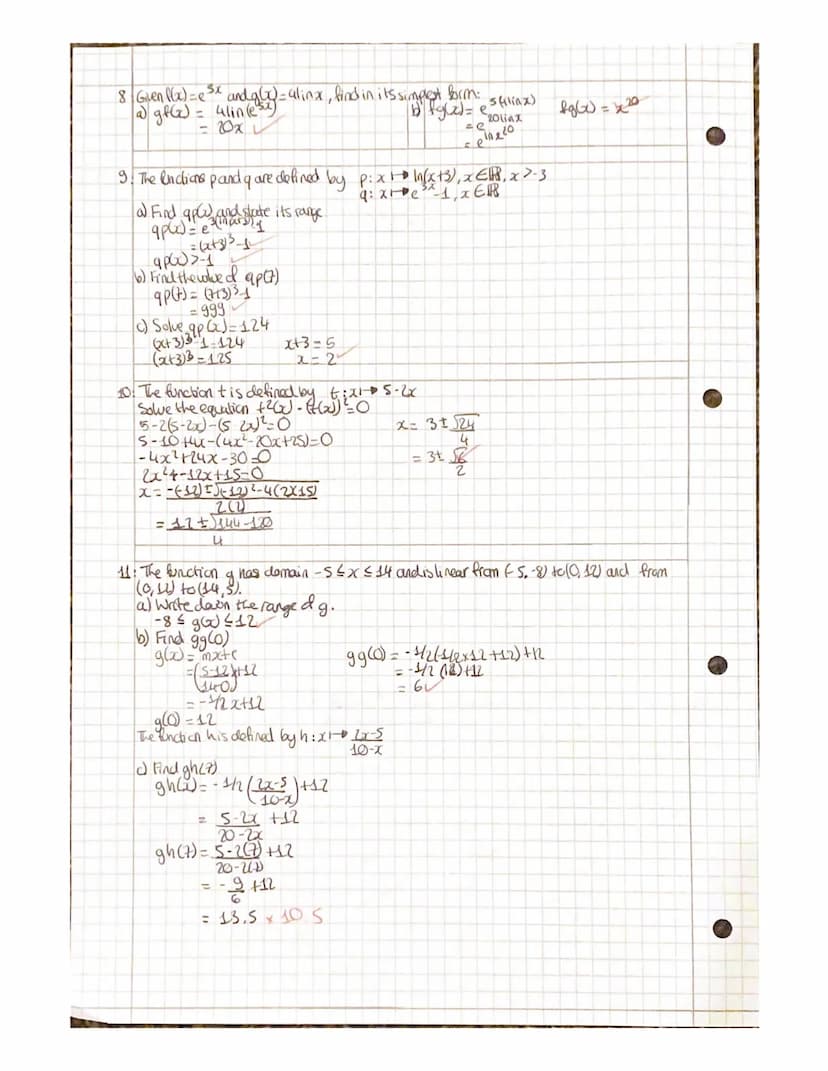 8 Given f(x) = e^5x and g(x) = 4linx, find in its simplest form:
a) gf(x) = 4lin(e^5x)
= 20x ✓
b) fg(x) = e^5(4linx)
= e^20linx
= e^lnx^20
fg(x) = x^20
9. The functions p and q are defined by p: x ↦ ln(x+3), x ∈ ℝ, x > -3
q: x ↦ e^3x - 1, x ∈ ℝ
a) Find qp(x) and state its range
qp(x) = e^3(ln(x+3)) - 1
= (x+3)^3 - 1 ✓
qp(x) > -1 ✓
b) Find the value of qp(7)
qp(7) = (7+3)^3 - 1
= 999 ✓
c) Solve qp(x) = 124
(x+3)^3 - 1 = 124
(x+3)^3 = 125
x+3 = 5
x = 2 ✓
10. The function t is defined by t: x ↦ 5-2x
Solve the equation t^2(x) - (t(x))^2 = 0
5-2(5-2x) - (5 2x)^2 = 0
5-10+4x-(4x^2-20x+25) = 0
-4x^2+24x-30 = 0
2x^2-12x+15 = 0
x = -(-12) ± √(-12)^2-4(2x15)
2(2)
= 12 ± √144-120
4
x = 3 ± √24
4
= 3 ± √6
2
11: The function g has domain -5 ≤ x ≤ 14 and is linear from (-5, -8) to (0, 12) and from
(0, 12) to (14, 5).
a) Write down the range of g.
-8 ≤ g(x) ≤ 12 ✓
b) Find gg(0)
g(x) = mx+c
= (5-12)x+12
(14-0)
= -1/2 x+12
g(0) = 12
gg(0) = -1/2(-1/2x12+12)+12
= -1/2 (12)+12
= 6 ✓
The function h is defined by h: x ↦ 2x-5
10-x
c) Find gh(7)
gh(x) = -1/2 (2x-5)+12
(10-x)
= 5-2x +12
20-2x
gh(7) = 5-2(7) +12
20-2(7)
= -9 +12
6
= 13.5 × 10.5